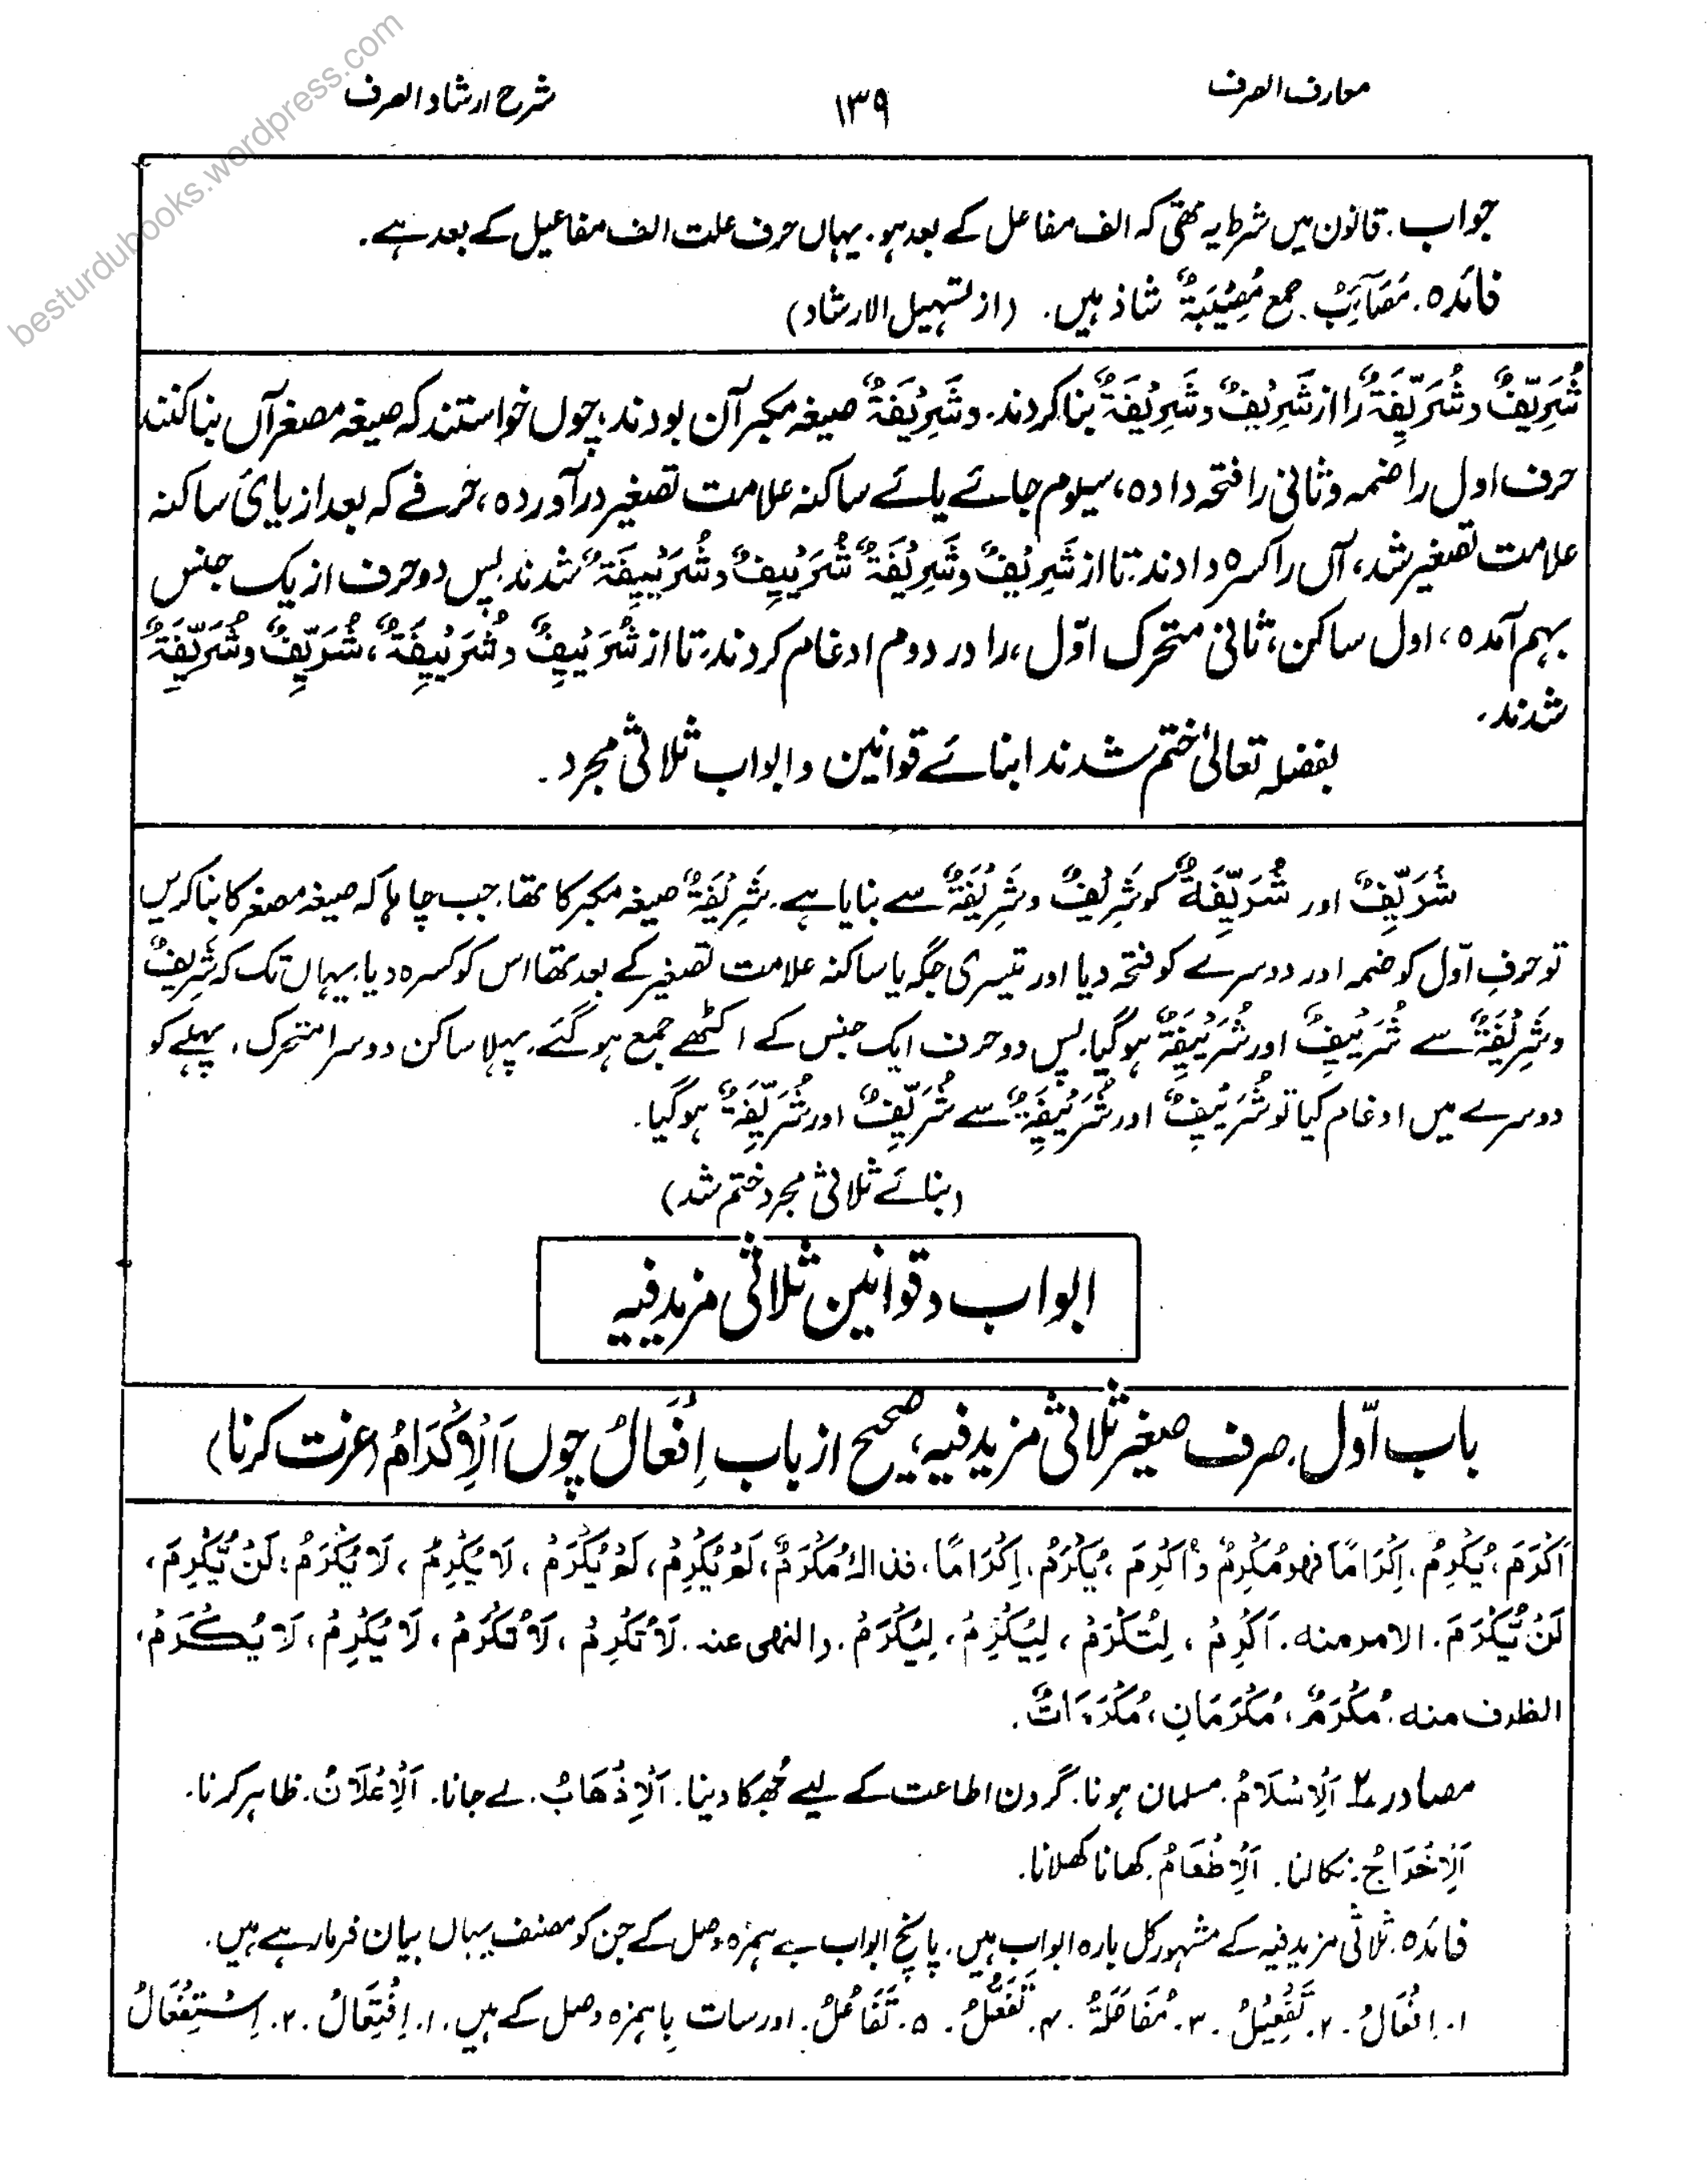 معارف الصرف
۱۳۹
شرح ارشاد الصرف
besturdubooks.wordpress.com
جواب۔ قانون میں شرط یہ تھی کہ الف مفاعل کے بعد ہو۔ یہاں حرف علت الف مفاعیل کے بعد ہے۔
فائدہ۔ مَصَآئِبُ جمع مُصِیْبَةٌ شاذ ہیں۔ (از تسہیل الارشاد)
شُرَیِّفٌ و شُرَیِّفَةٌ را از شَرِیْفٌ و شَرِیْفَةٌ بنا کردند۔ و شَرِیْفَةٌ صیغہ مکبر آن بودند، چوں خواستند کہ صیغہ مصغر آں بنا کنند
حرف اول را ضمہ و ثانی را فتحہ دادہ، سیلوم جائے یائے ساکنہ علامت تصغیر در آوردہ، حرفے کہ بعد از یائ ساکنہ
علامت تصغیر شد، آں را کسرہ دادند۔ تا از شَرِیْفٌ و شَرِیْفَةٌ شُرَیْیِفٌ و شُرَیْیِفَةٌ شدند۔ پس دو حرف از یک جنس
بہم آمدہ، اول ساکن، ثانی متحرک اوّل، را در دوم ادغام کردند۔ تا از شُرَیْیِفٌ و شُرَیْیِفَةٌ، شُرَیِّفٌ و شُرَیِّفَةٌ
شدند۔
بفضلہ تعالیٰ ختم شدند ابنائے قوانین و ابواب ثلاثی مجرد۔
شُرَیِّفٌ اور شُرَیِّفَةٌ کو شَرِیْفٌ و شَرِیْفَةٌ سے بنایا ہے۔ شَرِیْفَةٌ صیغہ مکبر کا تھا۔ جب چاہا کہ صیغہ مصغر کا بنا کریں
تو حرفِ اوّل کو ضمہ اور دوسرے کو فتحہ دیا اور تیسری جگہ یا ساکنہ علامت تصغیر کے بعد تھا اس کو کسرہ دیا۔ یہاں تک کہ شَرِیفٌ
و شَرِیْفَةٌ سے شُرَیْیِفٌ اور شُرَیْیِفَةٌ ہوگیا۔ پس دو حرف ایک جنس کے اکٹھے جمع ہو گئے۔ پہلا ساکن دوسرا متحرک۔ پہلے کو
دوسرے میں ادغام کیا تو شُرَیْیِفٌ اور شُرَیْیِفَةٌ سے شُرَیِّفٌ اور شُرَیِّفَةٌ ہوگیا۔
(بنائے ثلاثی مجرد ختم شد)
ابواب و قوانین ثلاثی مزید فیہ
باب اوّل۔ صرف صغیر ثلاثی مزید فیہ، صحیح از باب اِفْعَالُ چوں اَلْاِکْرَامُ (عزت کرنا)
اَکْرَمَ، یُکْرِمُ، اِکْرَامًا فهو مُکْرِمٌ و اُکْرِمَ، یُکْرَمُ، اِکْرَامًا، فذاك مُکْرَمٌ، لَمْ یُکْرِمْ، لَمْ یُکْرَمْ، لَا یُکْرِمُ، لَا یُکْرَمُ، لَنْ یُّکْرِمَ،
لَنْ یُّکْرَمَ۔ الامر منه۔ اَکْرِمْ، لِتُکْرَمْ، لِیُکْرِمْ، لِیُکْرَمْ۔ والنهی عنه۔ لَا تُکْرِمْ، لَا تُکْرَمْ، لَا یُکْرِمْ، لَا یُکْرَمْ،
الظرف منه۔ مُکْرَمٌ، مُکْرَمَانِ، مُکْرَمَاتٌ۔
مصادر ۲ اَلْاِسْلَامُ۔ مسلمان ہونا۔ گردن اطاعت کے لیے جُھکا دینا۔ اَلْاِذْهَابُ۔ لے جانا۔ اَلْاِعْلَانُ۔ ظاہر کرنا۔
اَلْاِخْرَاجُ۔ نکالنا۔ اَلْاِطْعَامُ۔ کھانا کھلانا۔
فائدہ۔ ثلاثی مزید فیہ کے مشہور کل بارہ ابواب ہیں۔ پانچ ابواب بے ہمزہ وصل کے جن کو مصنف یہاں بیان فرما رہے ہیں۔
۱۔ اِفْعَالُ۔ ۲۔ تَفْعِیْلُ۔ ۳۔ مُفَاعَلَةُ۔ ۴۔ تَفَعُّلُ۔ ۵۔ تَفَاعُلُ۔ اور سات با ہمزہ وصل کے ہیں۔ ۱۔ اِفْتِعَالُ۔ ۲۔ اِسْتِفْعَالُ